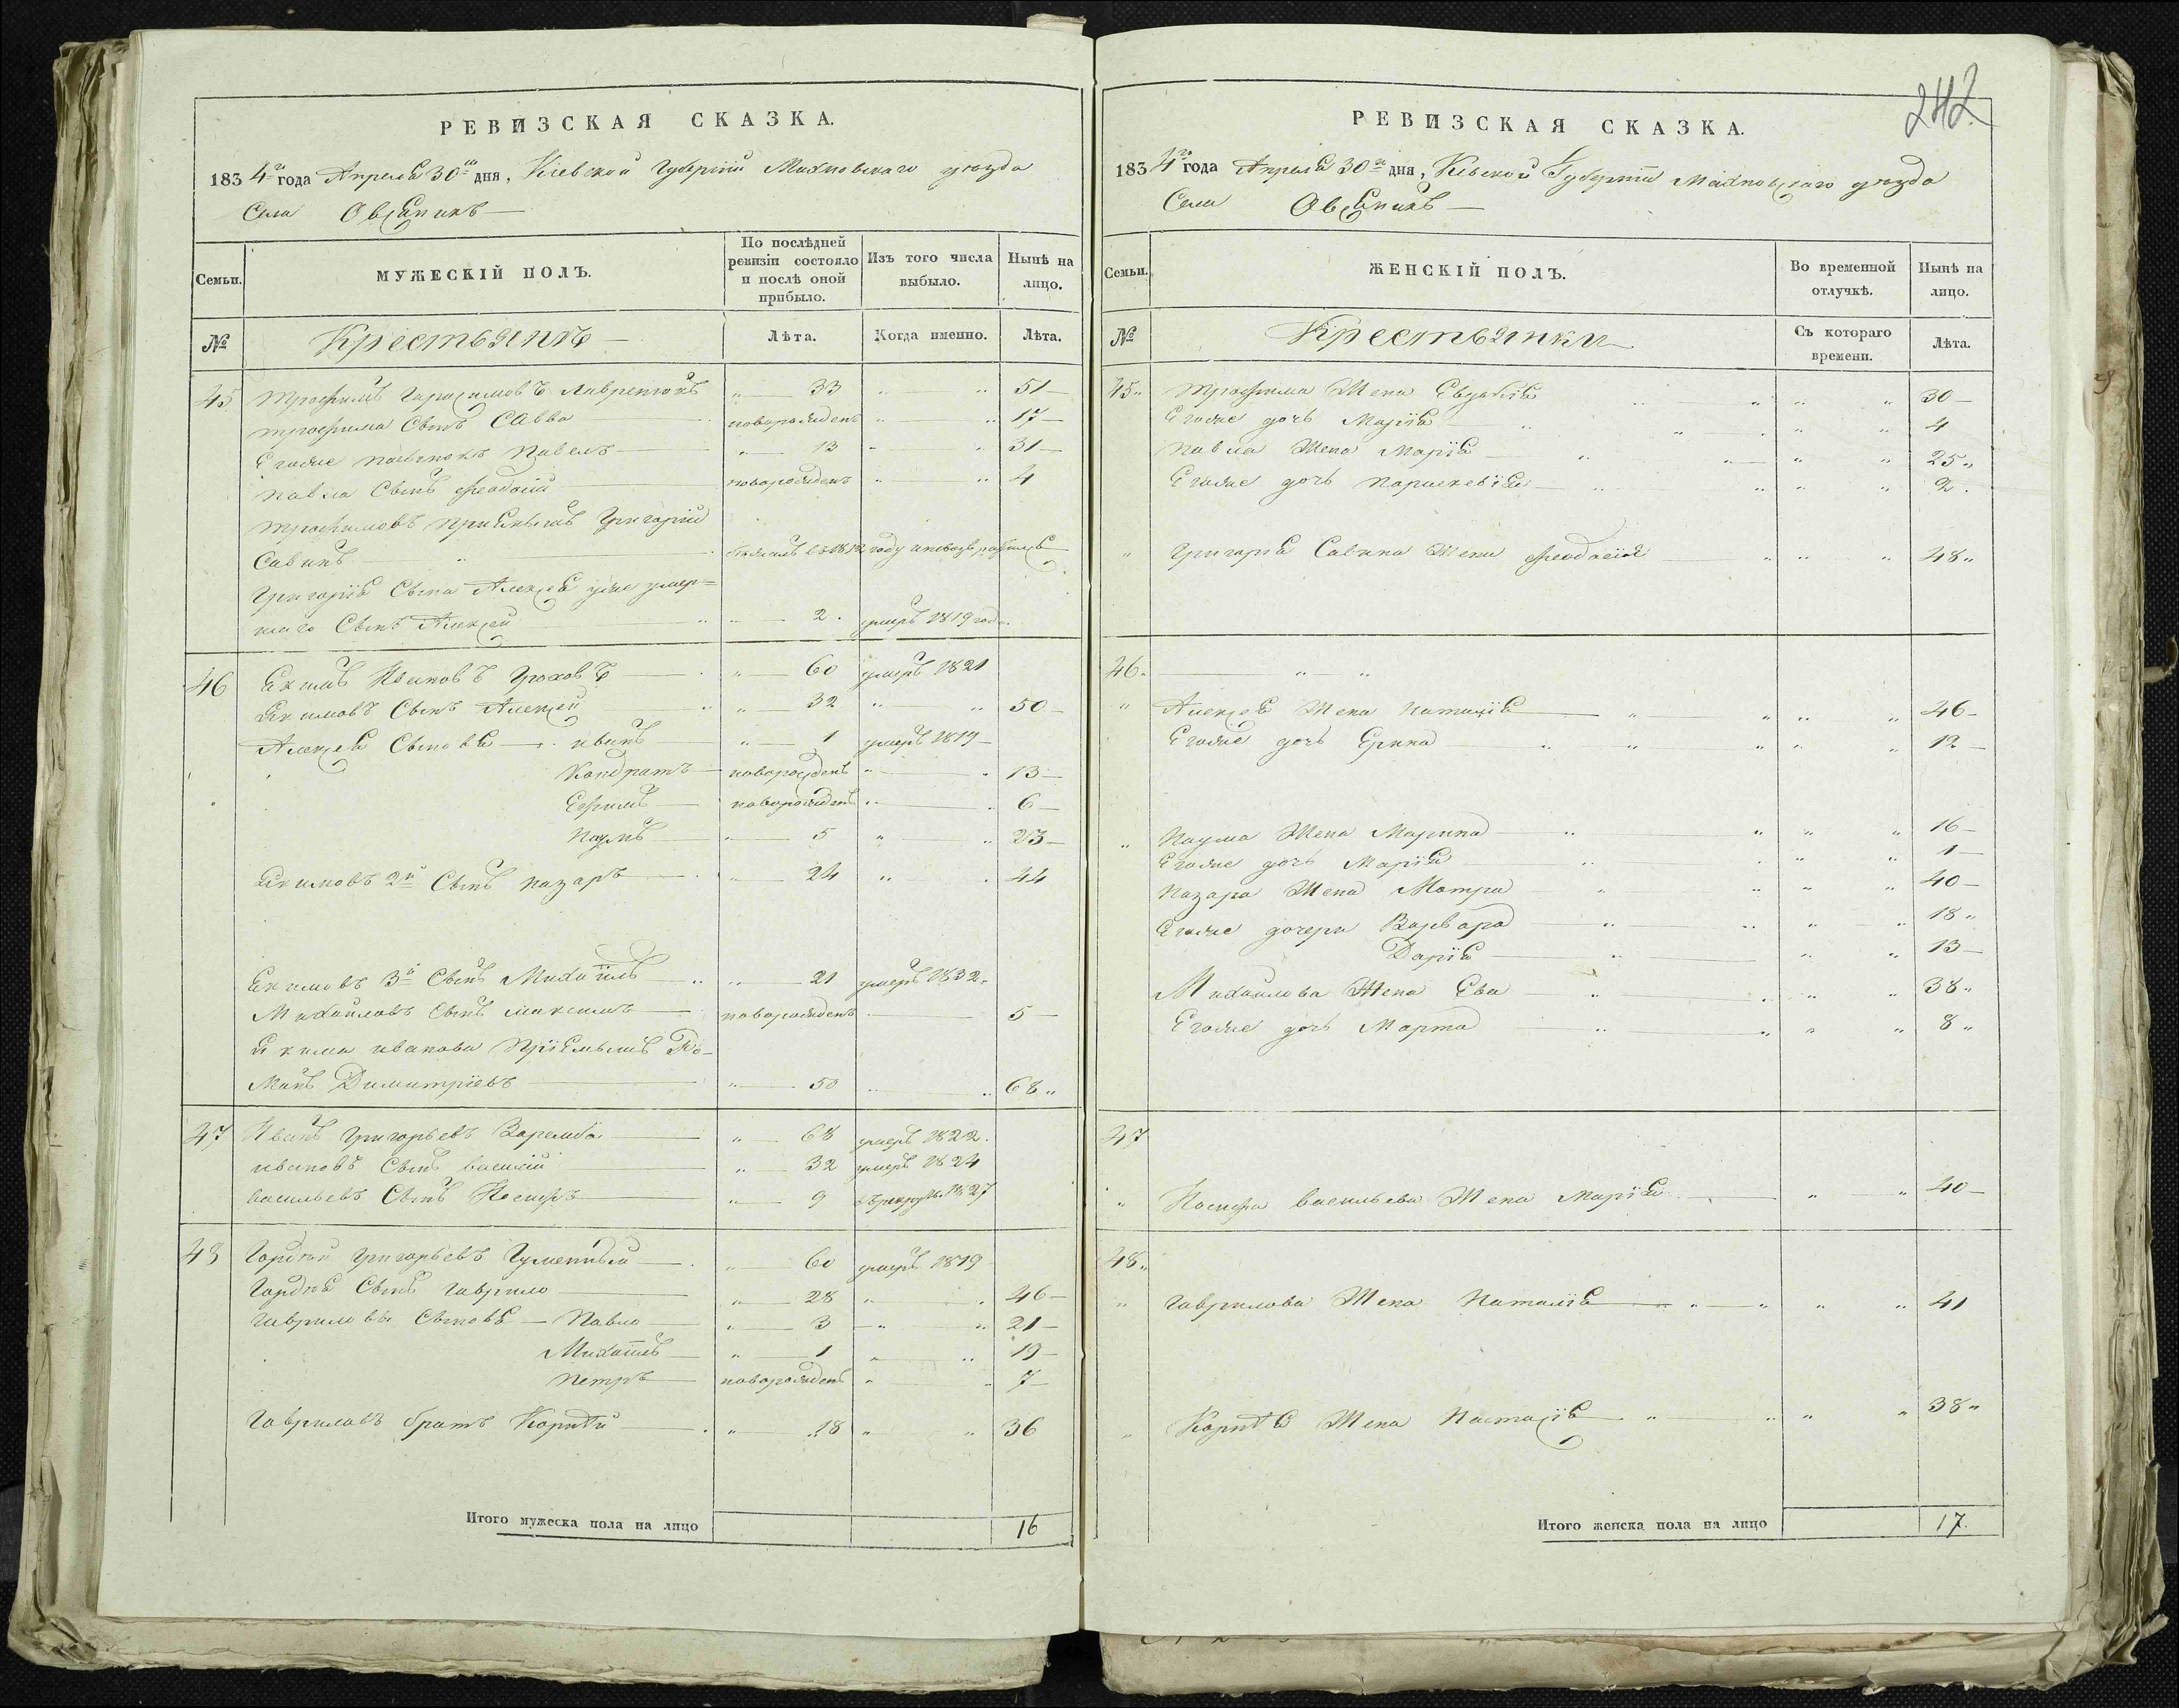 РЕВИЗСКАЯ СКАЗКА.
183 4го года Апреля 30го дня, Кіевской Губерніи Махновскаго уѣзда
Села Овсяникъ
Семьи.
МУЖЕСКІЙ ПОЛЪ.
По послѣдней ревизіи состояло и послѣ оной прибыло.
Изъ того числа выбыло.
Нынѣ на лицо.
№
Крестьянъ
Лѣта.
Когда именно.
Лѣта.
45 Трофимъ Гарасимовъ 33 51
Трофима Сынъ Савва новорожденъ 17
Егоже Павелъ 13 31
Павла Сынъ Феодосій новорожденъ 4
Трофимовъ Пріемышъ Григорій
Савинъ 1812 году
Григорія Сына Алексея уже умер=
шаго Сынъ Алексей 2 умеръ 1819 года
46 Екимъ Ивановъ Гороховъ 60 умеръ 1821
Екимовъ Сынъ Алексей 32 50
Алексея Сыновья Иванъ 1 умеръ 1819
Кондратъ новорожденъ 13
Ефимъ новорожденъ 6
Наумъ 5 23
Екимовъ 2й Сынъ Назаръ 24 44
Екимовъ 3й Сынъ Михаилъ 21 умеръ 1832
Михайловъ Сынъ Максимъ новорожденъ 5
Екима Иванова Пріемышъ Ро-
манъ Димитріевъ 50 68
47 Иванъ Григорьевъ Заремба 68 умеръ 1822
Ивановъ Сынъ Василій 32 умеръ 1824
Васильевъ Сынъ Іосифъ 9 въ рекруты 1827
48 Гордѣй Григорьевъ Гуменный 60 умеръ 1819
Гордѣя Сынъ Гаврило 28 46
Гавриловы Сыновья Павло 3 21
Михаилъ 1 19
Петръ новорожденъ 7
Гавриловъ братъ Корнѣй 18 36
Итого мужеска пола на лицо 16
242
РЕВИЗСКАЯ СКАЗКА.
183 4го года Апреля 30го дня, Кіевской Губерніи Махновскаго уѣзда
Села Овсяникъ
Семьи.
ЖЕНСКІЙ ПОЛЪ.
Во временной отлучкѣ.
Нынѣ на лицо.
№
Крестьянки
Съ котораго времени.
Лѣта.
45 Трофима Жена Евдокія 30
Егоже дочь Марія 4
Павла Жена Марія 25
Егоже дочь Параскевія 2
Григорія Савина Жена Феодосія 48
46
Алексея Жена Наталія 46
Егоже дочь Ерина 12
Наума Жена Марина 16
Егоже дочь Марія 1
Назара Жена Мотря 40
Егоже дочери Варвара 18
Дарія 13
Михайлова Жена Ева 38
Егоже дочь Марта 8
47
Іосифа Васильева Жена Марія 40
48
Гаврилова Жена Наталія 41
Корнѣя Жена Настасія 38
Итого женска пола на лицо 17